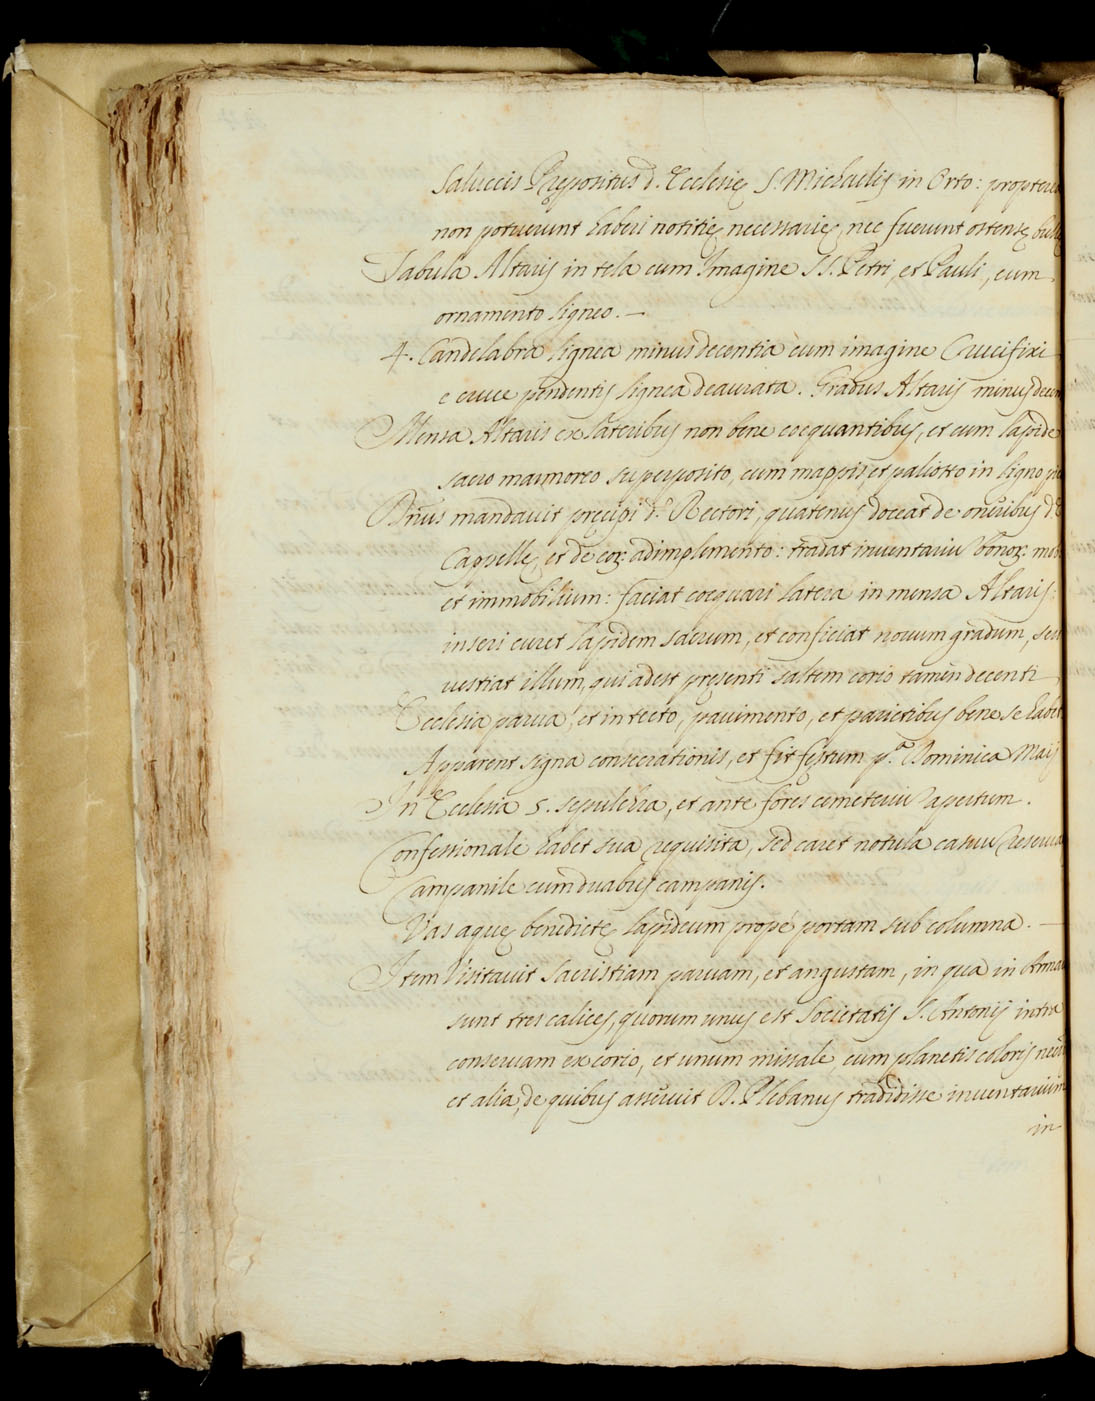 Saluccis Prepositus d. Ecclesie S. Michaelis in Orto: propterea
non potuerunt haberi notitie necessarie, nec fuerunt ostense
Tabula Altaris in tela cum Imagine SS. Petri, et Pauli, cum
ornamento ligneo. —
4. Candelabra lignea minus decentia cum imagine Crucifixi
e cruce pendentis lignea deaurata. Gradus Altaris minus
Mensa Altaris ex lateribus non bene coequantibus, et cum lapide
sacro marmoreo superposito, cum mappis, et paliotto in ligno
D.nus mandavit precipi d.o Rectori, quatenus doceat de oneribus d.
Cappelle, et de eor: adimplemento: tradat inventariu bonor: mob
et immobilium: faciat coequari latera in mensa Altaris:
inseri curet lapidem sacrum, et conficiat novum gradum, seu
vestiat illum, qui adest presenti saltem corio tamen decenti
Ecclesia parva, et in tecto, pavimento, et parietibus bene se habet
Apparent signa consecrationis, et fit festum p.a Dominica Maij
In Ecclesia 5. sepulchra, et ante fores cemeteriu apertum.
Confessionale habet sua requisita, sed caret notula casuu reserva
Campanile cum duabus campanis.
Vas aque benedicte lapideum propè portam sub columna. —
Item Visitavit Sacristiam parvam, et angustam, in qua in Arma
sunt tres calices, quorum unus est Societatis S. Antonij intra
conservam ex corio, et unum missale, cum planetis coloris
et alia, de quibus asseruit D. Plebanus tradidisse inventarium
in